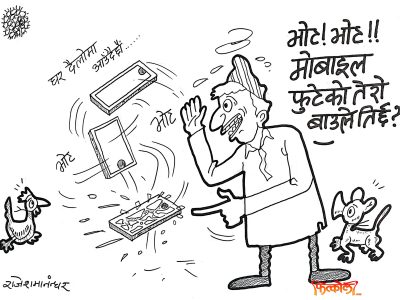 घर दैलोमा
आउँदैछौं.....
भोट! भोट!!
मोबाइल
फुटेको तेरो
बाउले तिर्छ?
भोट
भोट
राजेशमानन्धर
फित्कौली